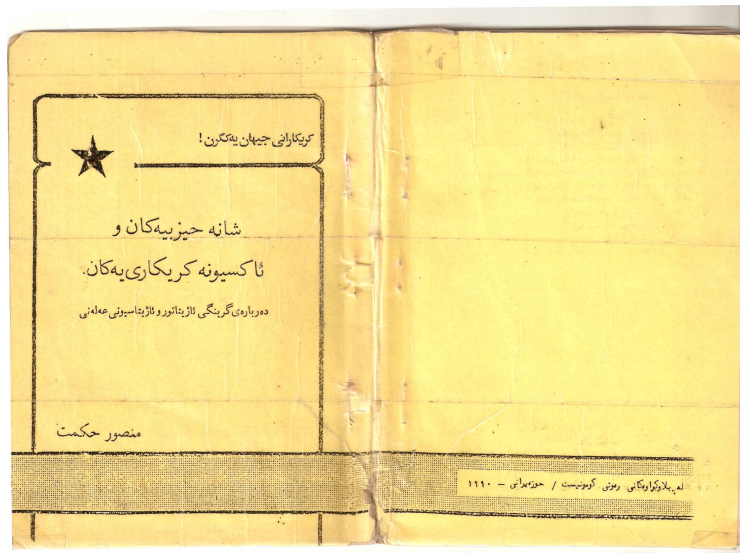 کریکارانی جیهان یەکگرن!
شانە حیزبیەکان و
ئاکسیونە کریکاری‌یەکان.
دەربارەی گرینگی ئاژیتاتور و ئاژیتاسیونی عەلەنی
منصور حکمت
لە بڵاوکراوەکانی رەوتی کومونیست / حوزەیرانی - ١٩٩٠